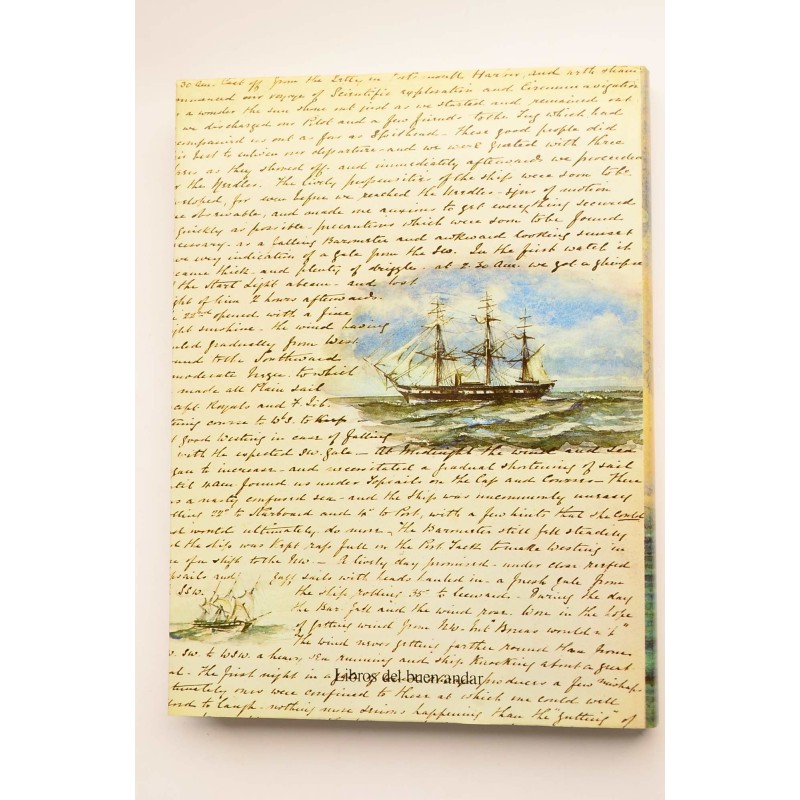 30 Am. Cast off from the Jetty in Portsmouth Harbor, and with steam
menced our voyage of Scientific exploration and Circumnavigation
a wonder the sun shone out just as we started and remained out
we discharged our Pilot and a few friends to the Tug which had
ompanied us out as far as Spithead. These good people did
best to enliven our departure and we were greeted with three
as they shoved off and immediately afterwards we proceeded
the Needles. The lively propensities of the ship were soon to be
eloped, for even before we reached the Needles signs of motion
e observable, and made me anxious to get everything secured
quickly as possible precautions which were soon to be found
cessary as a falling Barometer and awkward looking sunset
indication of a gale from the SW. In the first watch it
came thick and plenty of drizzle at 2.30 Am. we got a glimpse
the Start Light abeam and lost
ght of him 2 hours afterwards.
22nd opened with a fine
ght sunshine. The wind having
led gradually from West
und to the Southward
moderate to which
made all Plain sail
cept Royals and F. Jib.
course to W'd. to keep
good Westing in case of falling
with the expected SW. Gale – At Midnight the wind and sea
gan to increase and necessitated a gradual shortening of sail
found us under Topsails on the Cap and Courses – There
s a nasty confused sea and the ship was uncommonly uneasy
lling 22° to Starboard and to Port, with a few hints that she could
would ultimately do more. The Barometer still fell steadily
d the ship was kept full on the Port Tack to make Westing in
of a shift to the NW. – A lively day promised under close reefed
psails and sails with heads hauled in a fresh gale from
SSW. the ship rolling 35° to leeward. During the day
the Bar. fell and the wind rose. Wore in the hope
of getting wind from NW. but Boreas would
The wind never getting farther round than from
SW. to WSW. a heavy sea running and ship knocking about a great
The first night in a produces a few mishaps
tunately ours were confined to those at which we could well
ord to laugh nothing more serious happening than the "gutting" of
Libros del buen andar